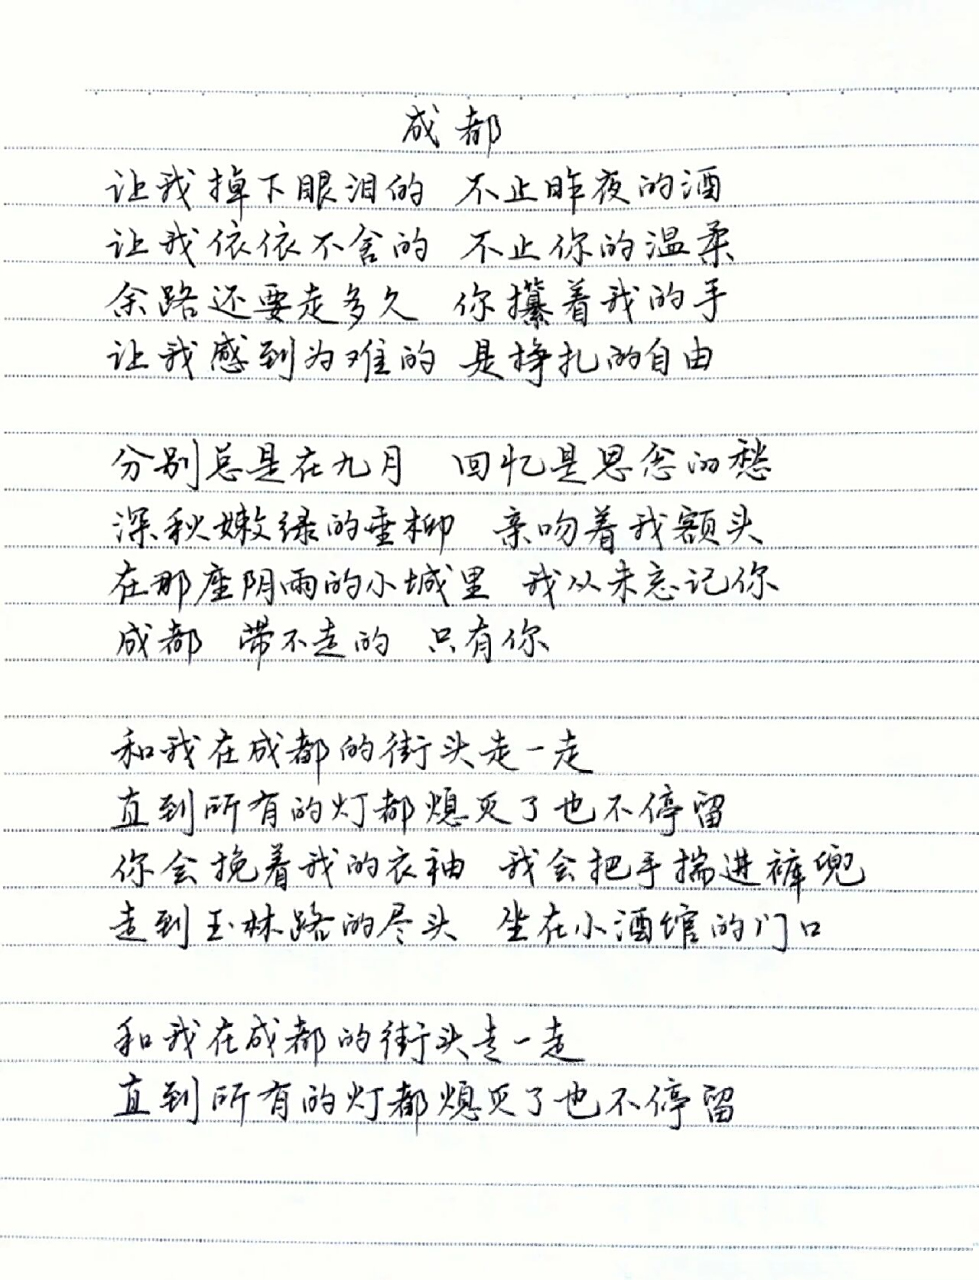 成都
让我掉下眼泪的 不止昨夜的酒
让我依依不舍的 不止你的温柔
余路还要走多久 你攥着我的手
让我感到为难的 是挣扎的自由
分别总是在九月 回忆是思念的愁
深秋嫩绿的垂柳 亲吻着我额头
在那座阴雨的小城里 我从未忘记你
成都 带不走的 只有你
和我在成都的街头走一走
直到所有的灯都熄灭了也不停留
你会挽着我的衣袖 我会把手揣进裤兜
走到玉林路的尽头 坐在小酒馆的门口
和我在成都的街头走一走
直到所有的灯都熄灭了也不停留